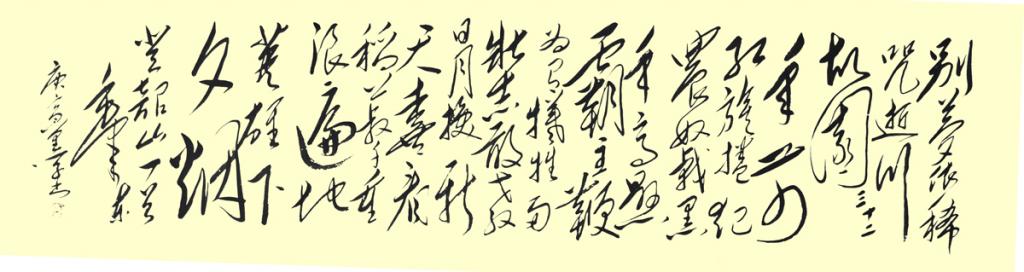 别梦依稀
咒逝川
故園三十二
年前
红旗捲起
農奴戟黑
手高悬
霸主鞭
为有犧牲多
壮志敢教
日月换新
天喜看
稻菽千重
浪遍地
英雄下
夕烟
登韶山
庚